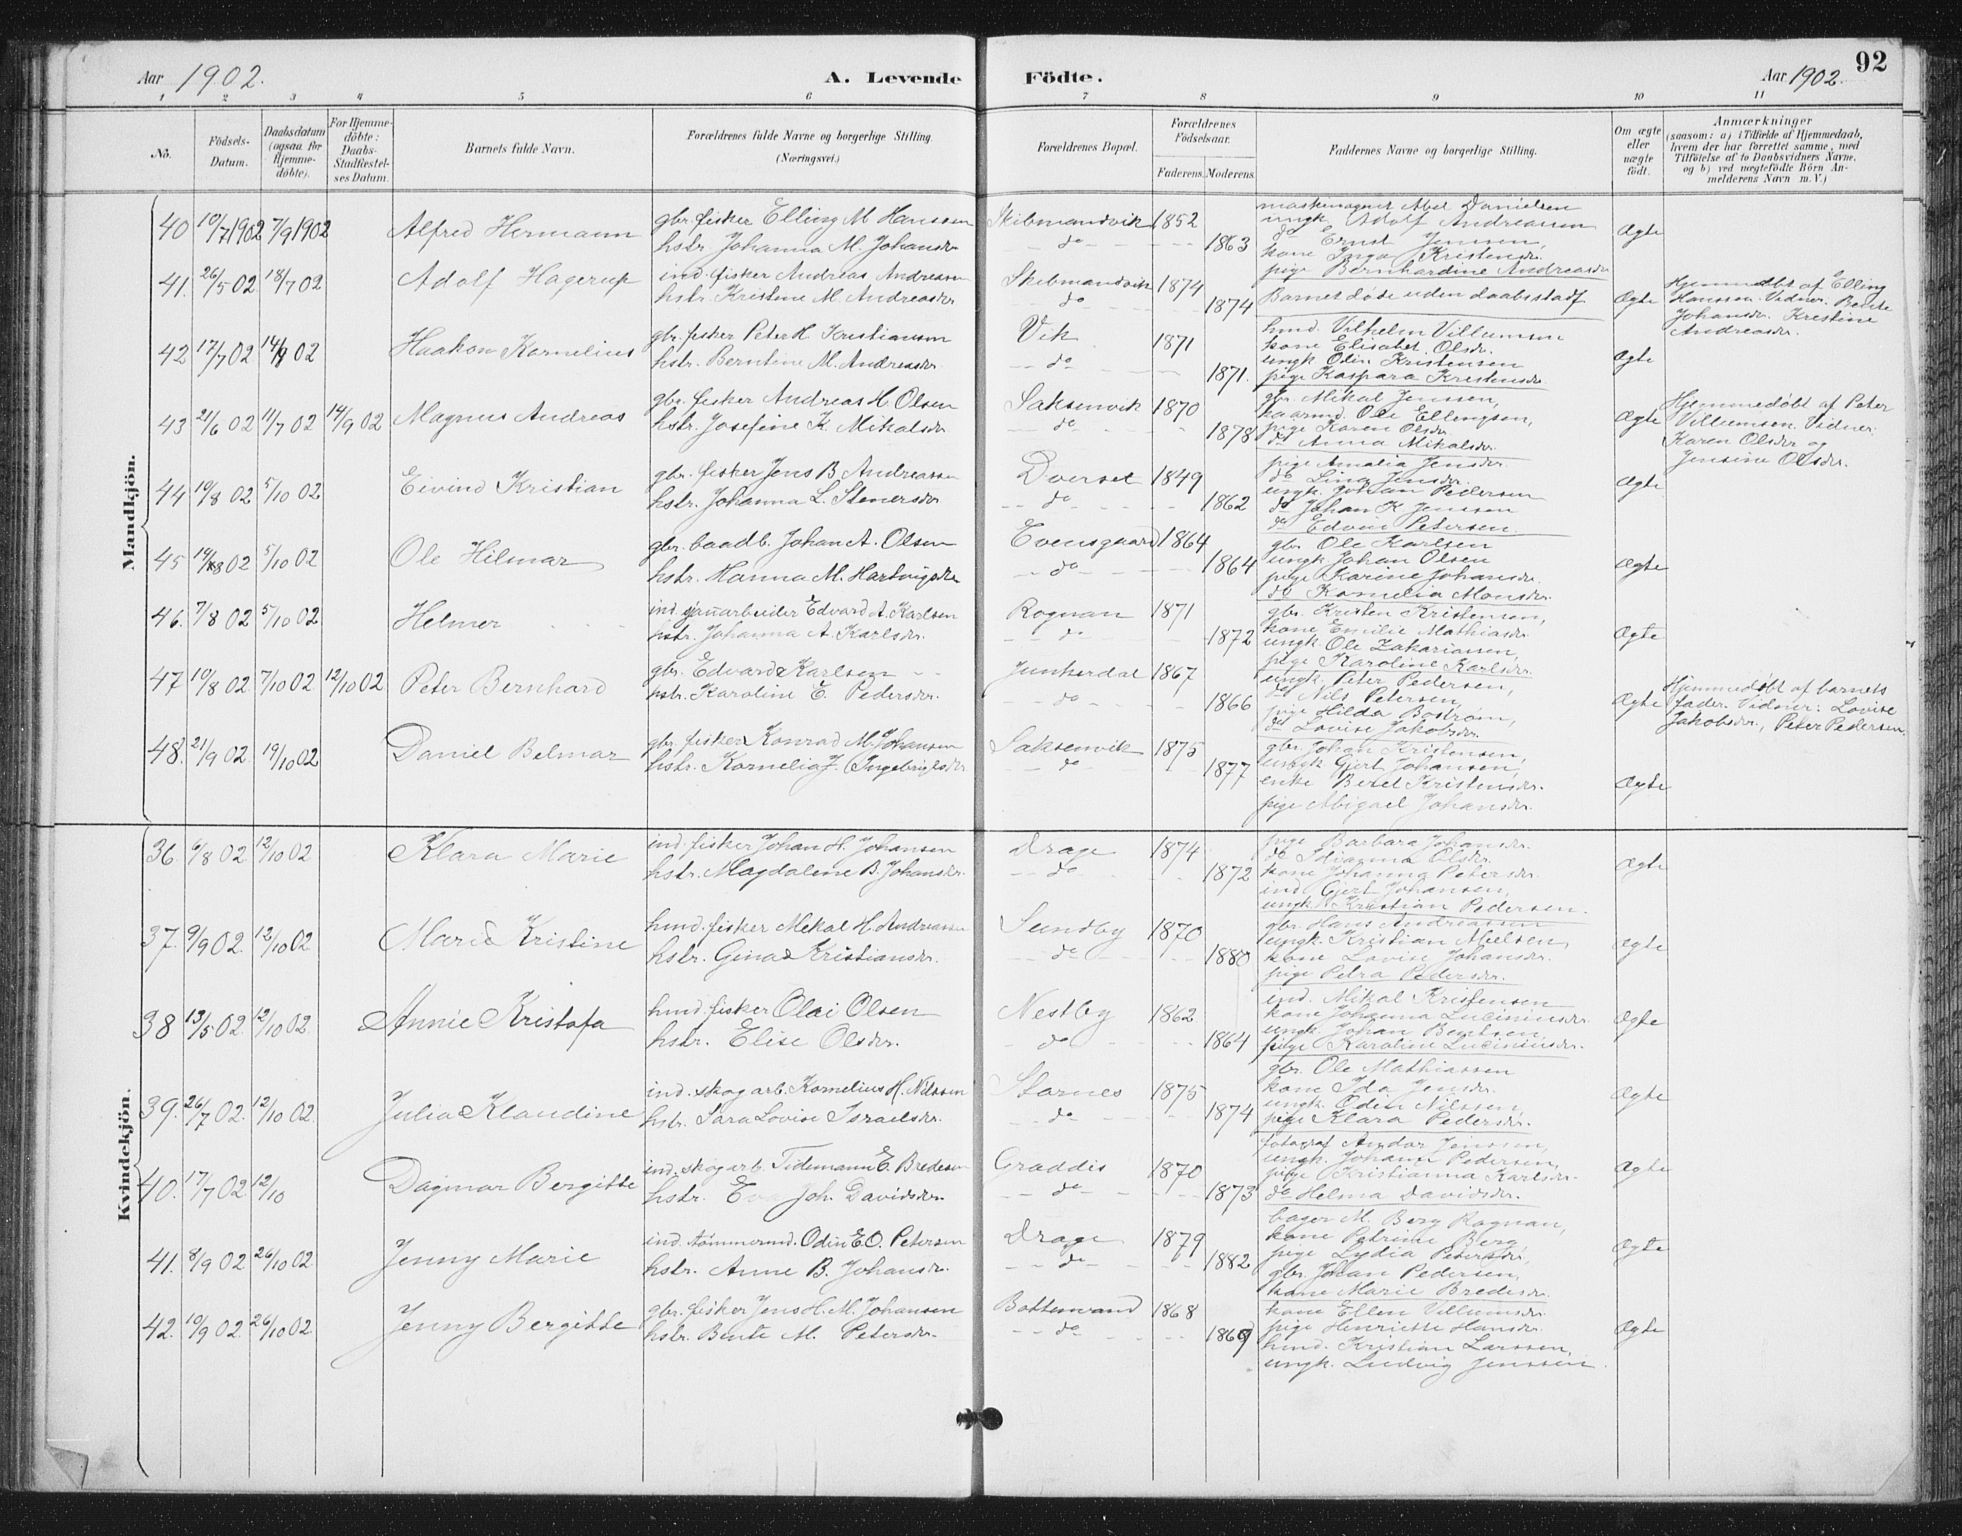 Aar 1902. A. Levende Födte. Aar 1902. 92
1 2 3 4 5 6 7 8 9 10 11
No. Födsels-Datum. Daabsdatum (ogsaa for Hjemme-döbte). For Hjemme-döbte: Daabs-Stadfæstel-ses Datum. Barnets fulde Navn. Forældrenes fulde Navne og borgerlige Stilling. (Næringsvei.) Forældrenes Bopæl. Forældrenes Födselsaar. Faderens. Moderens. Faddernes Navne og borgerlige Stilling. Om ægte eller uægte födt. Anmærkninger (saasom: a) i Tilfælde af Hjemmedaab, hvem der har forrettet samme, med Tilföielse af to Daabsvidners Navne, og b) ved uægtefödte Börn An-melderens Navn m. V.)
Mandkjön.
40 10/7 1902 7/9 1902 Alfred Hermann gbr. fisker Elling M. Hanssen Skibmandvik 1852
hstr. Johanna M. Johansdr do 1863
Abel Danielsen
ungk. Adolf Andreassen
do Ernst Jenssen,
kone Inga Kristensdr.
pige Bernhardine Andreasdr
Ægte
41. 26/5 02 18/7 02 Adolf Hagerup ind. fisker Andreas Andreassen Skibmandvik 1874
hstr. Kristine M. Andreasdr do 1874
Barnet döde uden daabsstadf
Ægte
Hjemmedöbt af Elling
Hanssen. Vidner: Bente
Johansdr. Kristine
Andreasdr.
42 17/7 02 14/9 02 Haakon Kornelius gbr. fisker Peter H. Kristiansen Vik 1871
hstr. Berntine M. Andreasdr do 1871.
hmd. Vilhelm Villumsen
kone Elisabet Olsdr.
ungk. Odin Kristensen
pige Kaspara Kristensdr
Ægte
43 21/6 02 11/7 02 14/9 02 Magnus Andreas gbr. fisker Andreas H. Olsen Saksenvik 1870
hstr. Josefine K. Mikalsdr do 1878
gbr. Mikal Jenssen,
kaarmd. Ole Ellingsen,
pige Karen Olsdr
do Anna Mikalsdr.
Ægte
Hjemmedöbt af Peter
Villumsen. Vidner:
Karen Olsdr og
Jensine Olsdr.
44 10/8 02 5/10 02 Eivind Kristian gbr. fisker Jens B. Andreassen Dverset 1849
hstr. Johanna L. Stenersdr do 1862
pige Amalia Jensdr.
do Lina Jensdr.
ungk. Johan Pedersen
do Johan K Jenssen
do Edvin Petersen.
Ægte
45 19/8 02 5/10 02 Ole Hilmar gbr. baadb. Johan A. Olsen Evensgaard 1864
hstr. Hanna M. Hartvigsdr do 1864
gbr. Ole Karlsen
ungk Johan Olsen
pige Karine Johansdr.
do Kornelia Monsdr.
Ægte
46. 7/8 02 5/10 02 Helmer ind. Edvard A. Karlsen Rognan 1871
hstr. Johanna A. Karlsdr. do 1872
gbr. Kristen Kristensen,
kone Emilie Mathiasdr
ungk Ole Zakariassen,
pige Karoline Karlsdr.
Ægte
47 10/8 02 7/10 02 12/10 02 Peter Bernhard gbr. Edvard Karlsen Junkerdal 1867
hstr. Karoline E. Pedersdr. do 1866
ungk. Peter Pedersen,
do Nils Petersen,
pige Hilda Boström,
do Lovise Jakobsdr.
Ægte
Hjemmedöbt af barnets
fader. Vidner: Lovise
Jakobsdr, Peter Pedersen.
48. 21/9 02. 19/10 02 Daniel Belmar gbr. fisker Konrad M. Johansen Saksenvik 1875
hstr. Kornelia J. Ingebrigtsdr do 1877
gbr. Johan Kristensen,
ungk Gjert Johansen,
enke Beret Kristensdr.
pige Abigael Johansdr.
Ægte
Kvindekjön.
36. 6/8 02 12/10 02 Klara Marie ind. fisker Johan H. Johansen Drage 1874
hstr. Magdaline B. Johansdr. do 1872
pige Barbara Johansdr.
do Olsdr.
kone Johanna Petersdr.
ind. Gjert Johansen,
ungk Kristian Pedersen.
Ægte
37. 9/9 02. 12/10 02 Marie Kristine hmd. fisker Mekal H. Andreassen Sundby 1870
hstr. Gina Kristiansdr. do 1880
gbr. Hans Andreassen
ungk. Kristian Nielsen,
kone Lovise Johansdr.
pige Petra Pedersdr.
Ægte
38 13/5 02. 12/10 02 Annie Kristofa hmd. fisker Olai Olsen Nestby 1862
hstr. Elise Olsdr. do 1864
ind. Mikal Kristensen
kone Johanna Luciniusdr.
ungk. Johan Bentsen
pige Karoline Luciniusdr.
Ægte
39. 26/7 02. 12/10 02. Julia Klaudine ind. skogarb. Kornelius H. Nilssen Stornes 1875
hstr. Sara Lovise Israelsdr. do 1874
gbr. Ole Mathiassen
kone Ida Jensdr.
ungk. Odin Nilssen,
pige Klara Pedersdr.
Ægte
40. 17/7 02 12/10 Dagmar Bergitte ind. skogarb. Tidemann E. Bredesen Graddis 1870
hstr. Eva Joh. Davidsdr. do 1873
fotograf Andor Jenssen,
ungk. Johann Pedersen,
pige Kristianna Karlsdr.
do Helma Davidsdr.
Ægte
41. 8/9 02 26/10 02 Jenny Marie ind. tömmermd. Odin E.O. Petersen Drage 1879
hstr. Anne B. Johansdr. do 1882
bager M. Berg Rognan,
kone Petrine Berg
pige Lydia Petersdr,
gbr. Johan Pedersen,
kone Marie Bredesdr.
Ægte
42. 10/9 02 26/10 02 Jenny Bergitte gbr. fisker Jens H. M. Johansen Bottenvand 1868
hstr. Bente M. Petersdr. do 1869
kone Ellen Villumsdr.
pige Henriette Hansdr.
hmd. Kristian Larssen,
ungk. Ludvig Jenssen.
Ægte